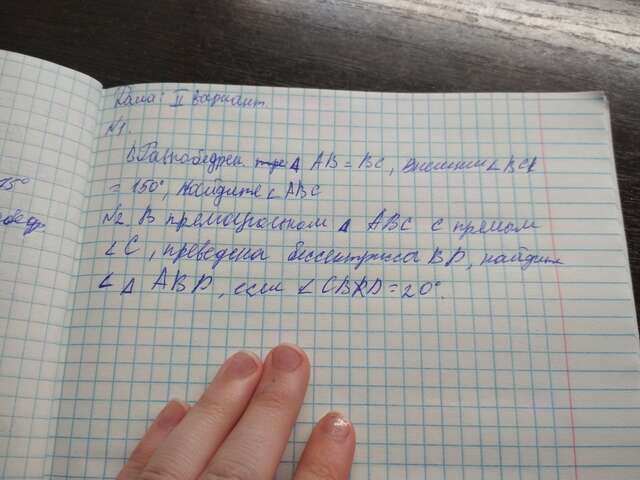 Дама: II вариант.
№1.
В Равнобедрен. Δ AB = BC, внешний ∠BCK
= 150°, Найдите ∠ABC
№2 В прямоугольном Δ ABC с прямым
∠C, преведена бессектрисса BD, найдите
∠ Δ ABD, если ∠CBD = 20°.
15°